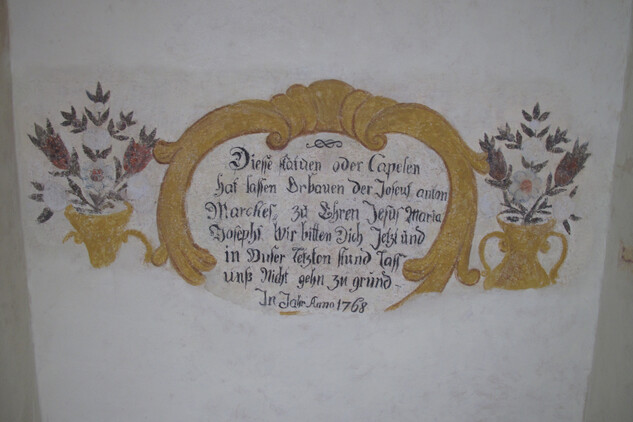 Diesse statuen oder Capelen
hat lassen Erbauen der Joseus anton
Marckes zu Ehren Jesus Maria
Josephs Wir bitten Dich Jetzt und
in Unser letzten stund Lass
unß Nicht gehn zu grund
In Jahr Anno 1768